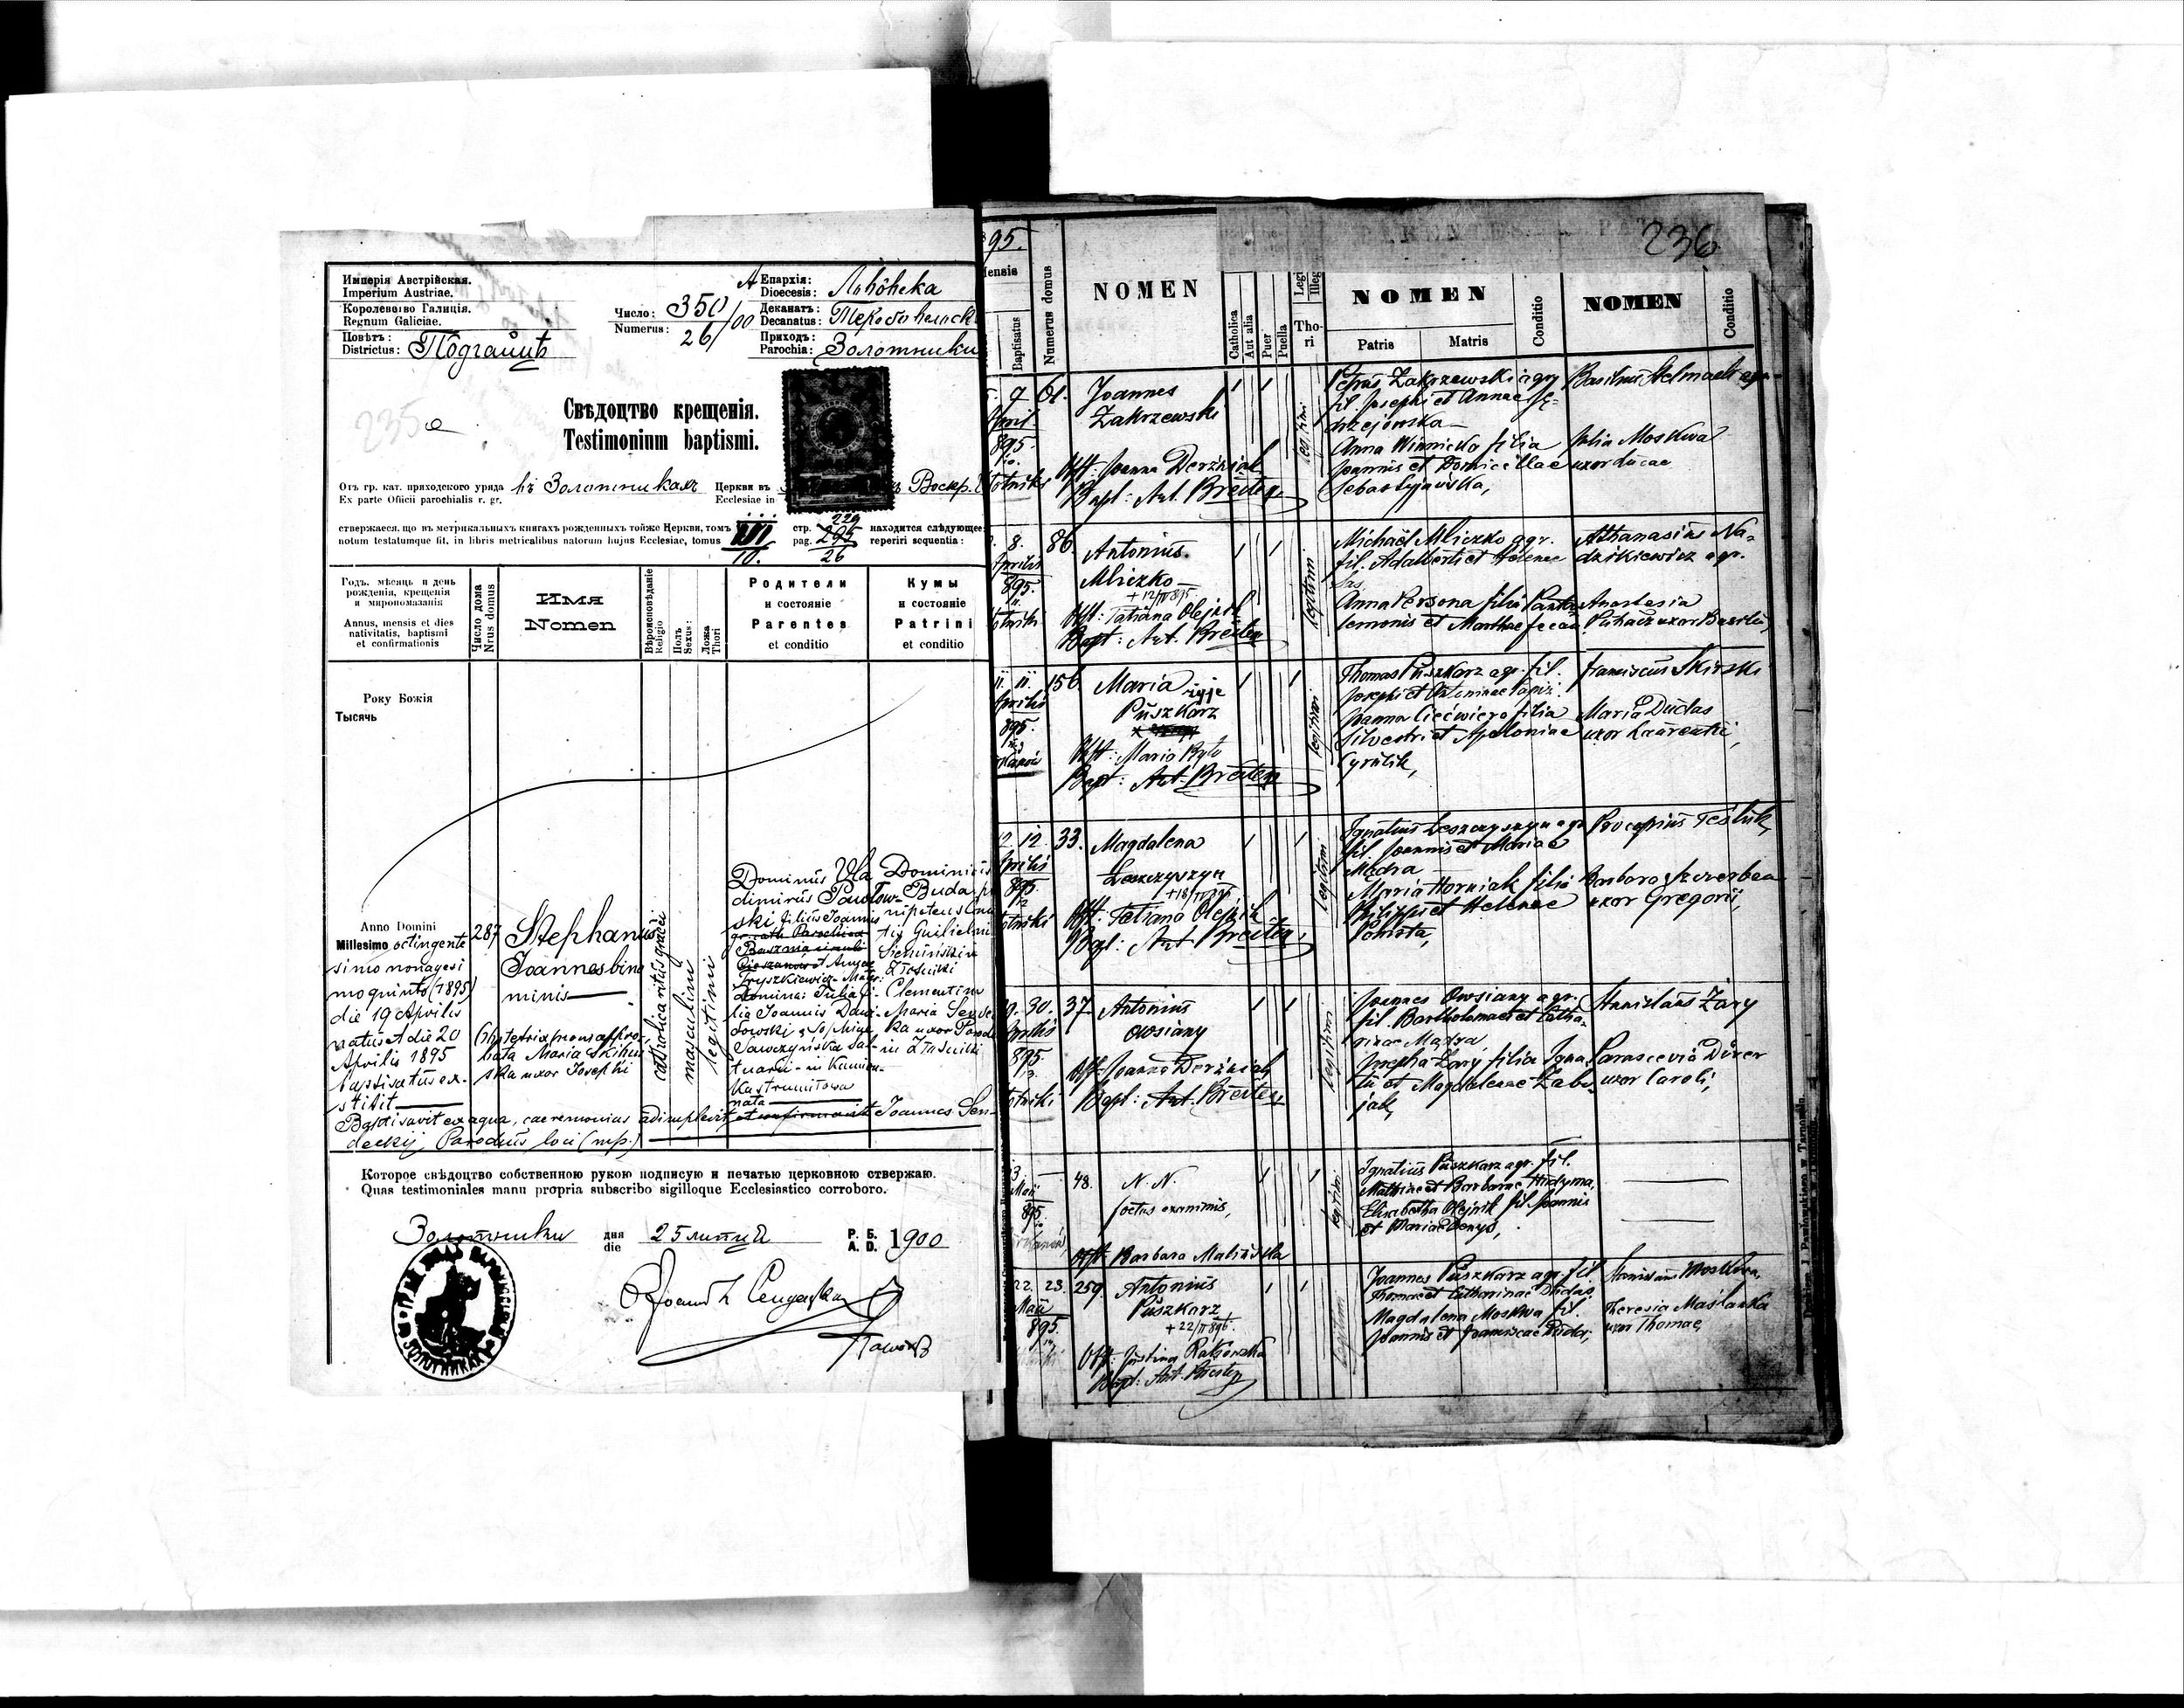 Имперія Австрійская.
Imperium Austriae.
Королевство Галиція.
Regnum Galiciae.
Повѣтъ:
Districtus:
Число: 350
Numerus: 26/00
Епархія:
Dioecesis: Львôвска
Деканатъ:
Decanatus:
Приходъ:
Parochia: Золотники
235a
Свѣдоцтво крещенія.
Testimonium baptismi.
Отъ гр. кат. приходского уряда въ Золотникахъ Церкви въ Воскр.
Ex parte Officii parochialis r. gr. Ecclesiae in
стверждаеся, що въ метрикальныхъ книгахъ рожденныхъ тойже Церкви, томъ стр. 229 находится слѣдующее:
notum testatumque fit, in libris metricalibus natorum hujus Ecclesiae, tomus pag. 295 reperiri sequentia:
10. 26
Годъ, мѣсяць и день
рожденія, крещенія
и миропомазанія
Annus, mensis et dies
nativitatis, baptismi
et confirmationis
Число дома
Nrus domus
Имя
Nomen
Вѣроисповѣданіе
Religio
Полъ
Sexus:
Ложа
Thori
Родители
и состояніе
Parentes
et conditio
Кумы
и состояніе
Patrini
et conditio
Року Божія
Тысячь
Anno Domini
Millesimo octingente
simo nonagesi
mo quinto (1895)
die 19 Aprilis
natus et die 20
Aprilis 1895
baptisatus ex-
stitit
287
Stephanus
Joannes bino
minis
Obstetrix non appro-
bata Maria
ska uxor Josephi
catholica ritus graeci
masculini
legitimi
Dominus Vla
dimirus Pawłow-
ski filius Joannis
gr. cath. Parochi
Cieszanów et Annae
Fryszkiewicz - Mater:
Domina: Julia fi-
lia Joannis Dani-
łowski & Sophiae
Sawczyńska Sal-
tuarii - in Kamion-
ka strumiłowa
nata
Dominicus
Buda
nipotens
tis Guilielmi
Siemiński in
Złotniki
Clementina
Maria Sende
ka uxor Paroch
in Złotniki
Baptisavit ex aqua, caeremonias adimplevit et confirmavit Joannes Sen-
deckij Parochus loci (mp.)
Которое свѣдоцтво собственною рукою подписую и печатью церковною ствержаю.
Quas testimoniales manu propria subscribo sigilloque Ecclesiastico corroboro.
Золотники дня 25 липня Р. Б. 1900
die A. D.
895.
Mensis
Baptisatus
Numerus domus
NOMEN
Catholica
Aut alia
Puer
Puella
Legi
Illeg
Tho-
ri
NOMEN
Patris
Matris
Conditio
NOMEN
Conditio
236
61. Joannes
Zakrzewski
Obst: Joanna Derżniak
Bapt: Ant. Breiter
legitimi
Petrus Zakrzewski agr
fil. Josephi et Annae Ję-
drzejowska
Anna Winnicka filia
Joannis et Domicellae
Basilius Stelmach agr
Julia Moskwa
uxor Lucae
8. Aprilis 895.
86. Antonius
Mliczko
Obst: Tatiana Olejnik
Bapt: Ant. Breiter
legitimi
Michaël Mliczko agr.
fil. Adalberti et Helenae
Anna Persona filia Panta-
lemonis et Marthae
Athanasius Na-
dzikiewicz agr.
Anastasia
Puhacz uxor Basilii
11. 11. Aprilis 895.
156. Maria
żyje
Puszkarz
Obst: Maria Byto
Bapt: Ant. Breiter
legitimi
Thomas Puszkarz agr. fil.
Josephi et Antoninae
Joanna Ciećwierz filia
Silvestri et Apoloniae
Cyrulik,
Franciscus Skirski
Maria Dudas
uxor Laurentii,
12. 12. Aprilis 895.
33. Magdalena
Leszczyszyn
Obst: Tetiana Olejnik
Bapt: Ant. Breiter
legitimi
Ignatius Leszczyszyn agr
fil. Joannis et Mariae
Mądra
Maria Horniak filia
Philippi et Helenae
Procopius Tesluk
Barbara Szczerban
uxor Gregorii,
30. Aprilis 895.
37. Antonius
Owsiany
Obst: Joanna Derżniak
Bapt: Ant. Breiter
legitimi
Joannes Owsiany agr.
fil. Bartholomaei et Catha-
rinae Mądra,
Josepha Żary filia Igna-
tii et Magdalenae Zabi-
jak,
Stanislaus Żary
Parascevia Direr
uxor Caroli,
Maii 895.
48. N. N.
foetus exanimis,
Obst: Barbara Malińska
legitimi
Ignatius Puszkarz agr. fil.
Mathiae et Barbarae Hudyma,
Elisabetha Olejnik fil. Joannis
et Mariae Denys,
22. 23. Maii 895.
259. Antonius
Puszkarz
+ 22/II 896.
Obst: Justina Rakowska
Bapt: Ant. Breiter
legitimi
Joannes Puszkarz agr. fil.
Thomae et Catharinae Dudas
Magdalena Moskwa fil.
Joannis et Franciscae Duda,
Stanislaus Moskwa,
Theresia Maślanka
uxor Thomae